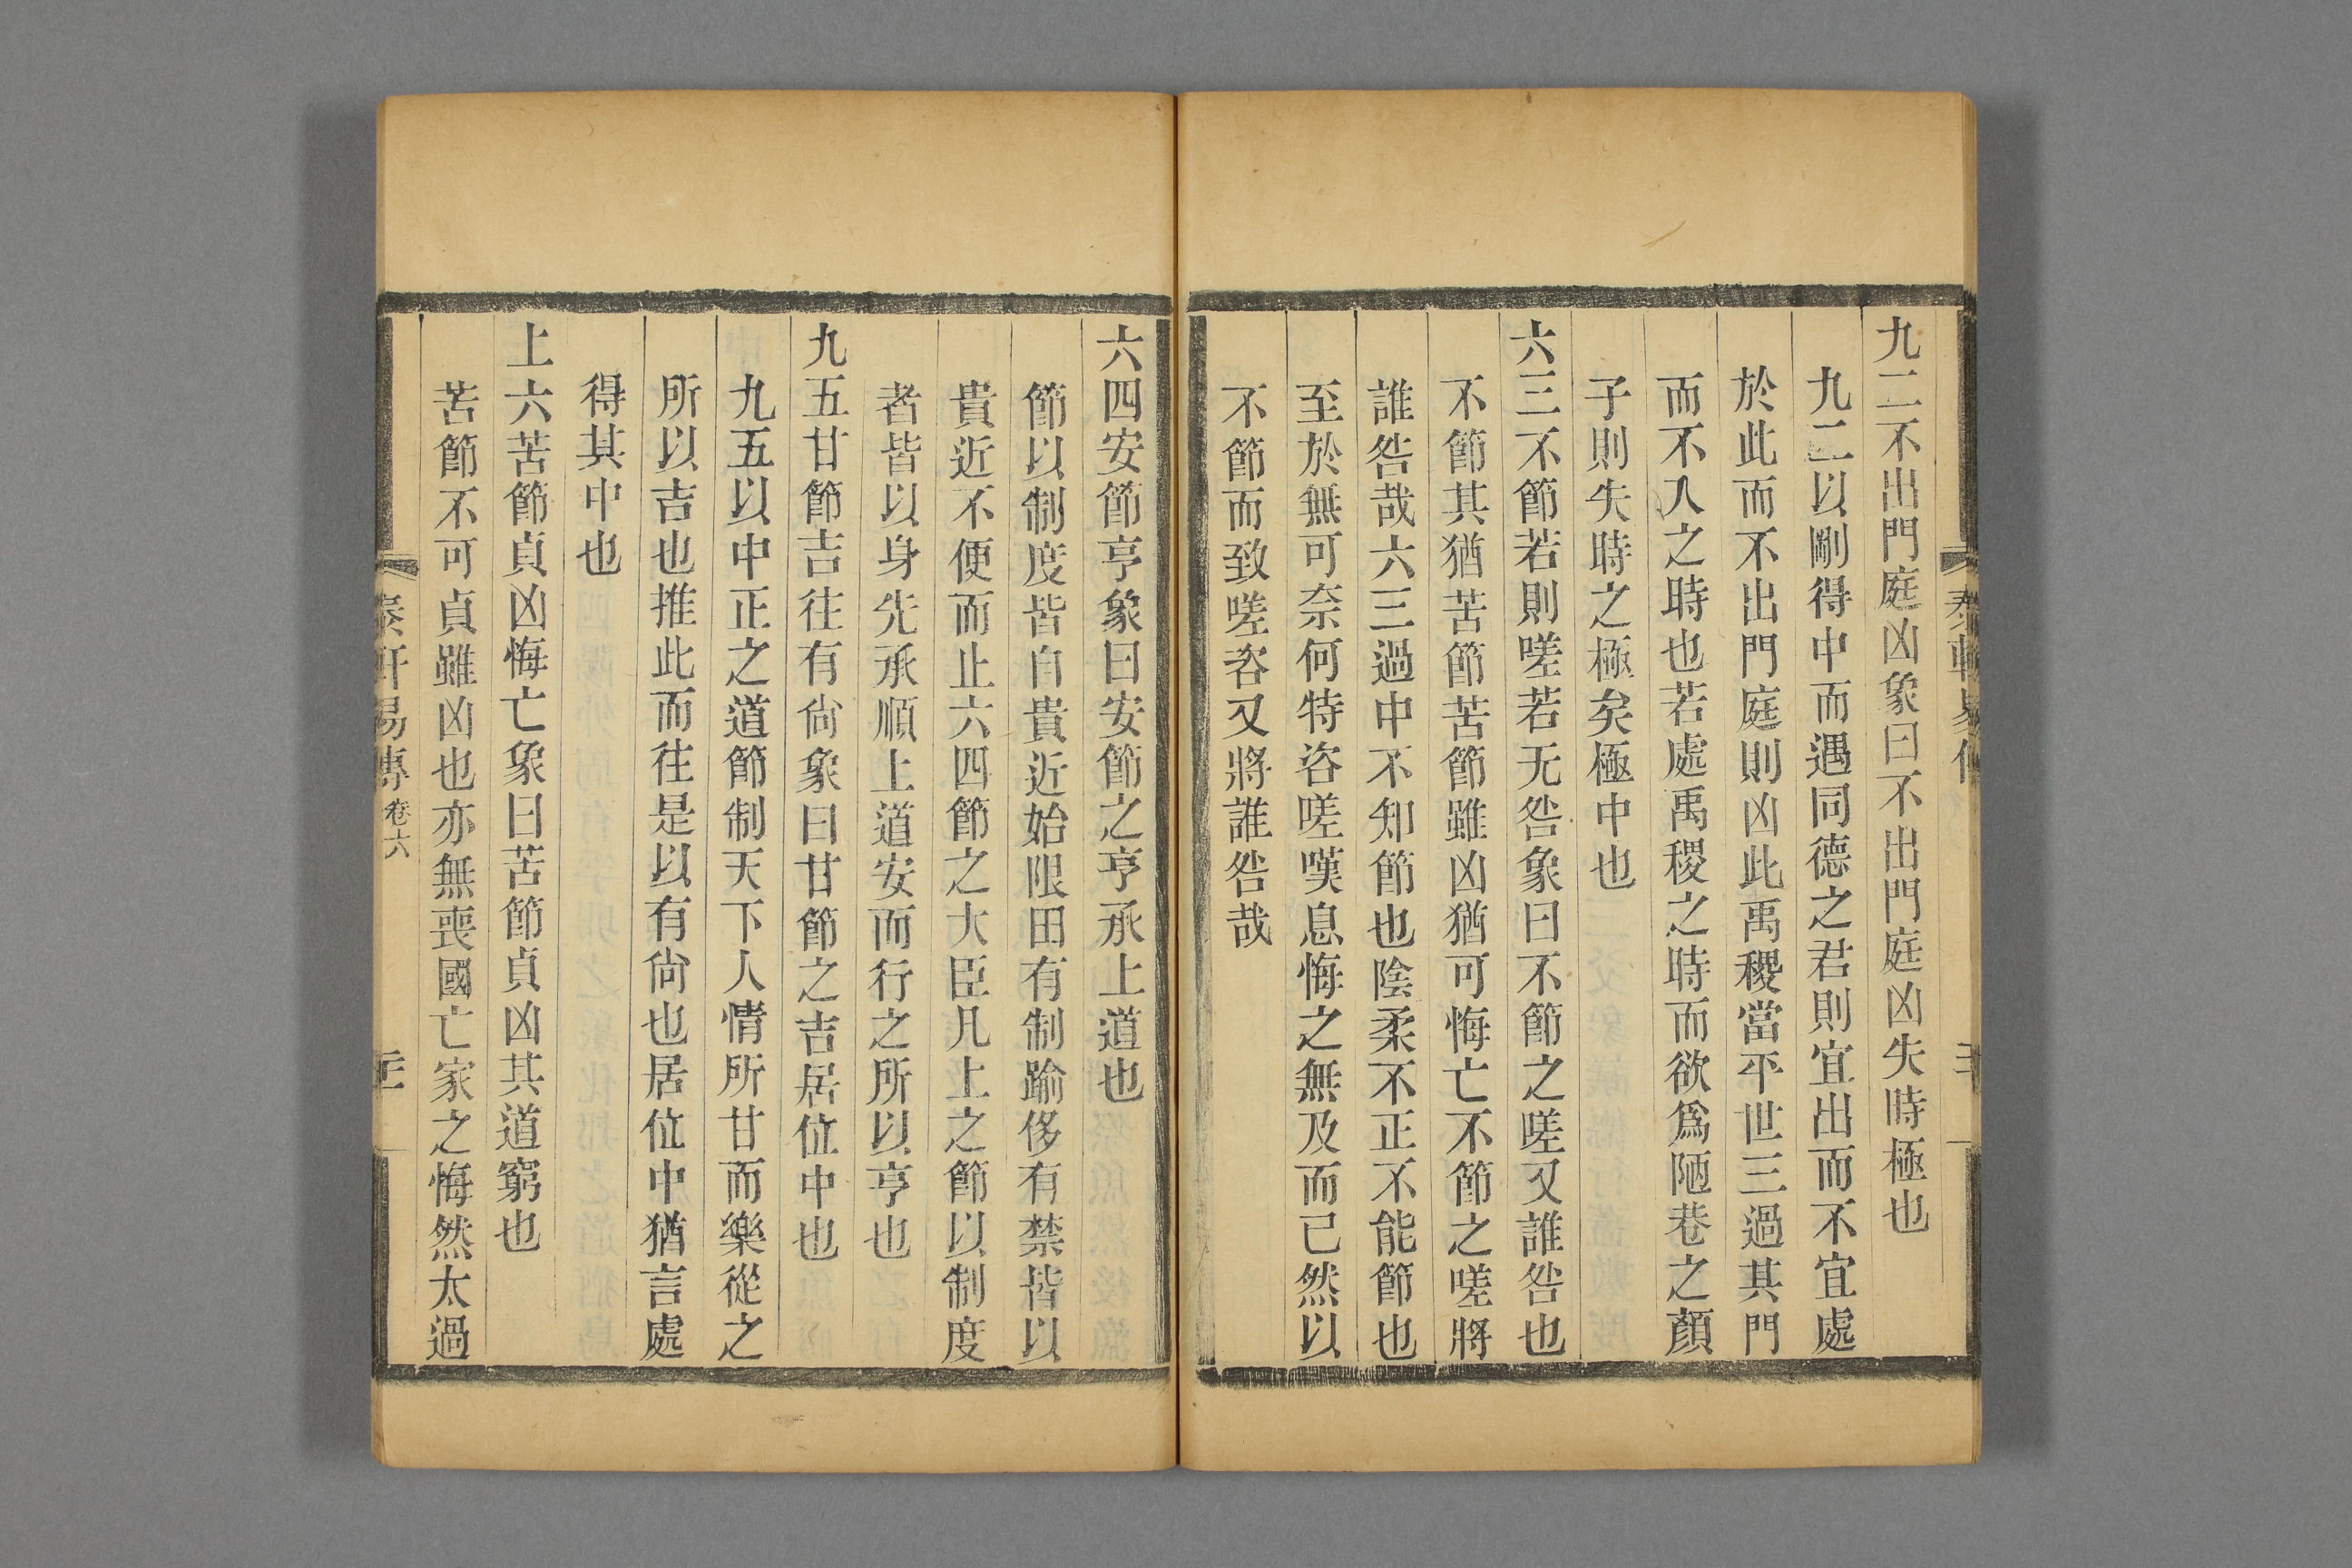 九二不出門庭凶象曰不出門庭凶失時極也
九二以剛得中而遇同德之君則宜出而不宜處
於此而不出門庭則凶此禹稷當平世三過其門
而不入之時也若處禹稷之時而欲爲陋巷之顏
子則失時之極矣極中也
六三不節若則嗟若无咎象曰不節之嗟又誰咎也
不節其猶苦節苦節雖凶猶可悔亡不節之嗟將
誰咎哉六三過中不知節也陰柔不正不能節也
至於無可奈何特咨嗟嘆息悔之無及而已然以
不節而致嗟咨又將誰咎哉
六四安節亨象曰安節之亨承上道也
節以制度皆自貴近始限田有制踰侈有禁皆以
貴近不便而止六四節之大臣凡上之節以制度
者皆以身先承順上道安而行之所以亨也
九五甘節吉往有尙象曰甘節之吉居位中也
九五以中正之道節制天下人情所甘而樂從之
所以吉也推此而往是以有尙也居位中猶言處
得其中也
上六苦節貞凶悔亡象曰苦節貞凶其道窮也
苦節不可貞雖凶也亦無喪國亡家之悔然太過
軒易傳 卷六